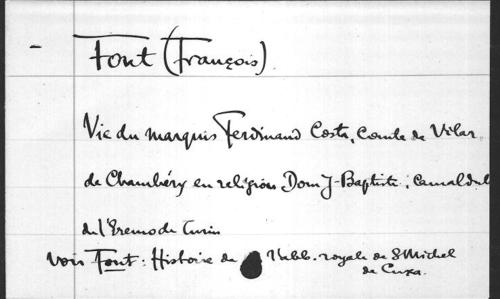 - Font (François)
Vie du marquis Ferdinand Costa, Comte de Vilar
de Chambéry en religion Dom J-Baptiste, camaldul
de l'Eremo de Turin
Vois Font : Histoire de l'Abb. royale de S Michel
de Cuxa.